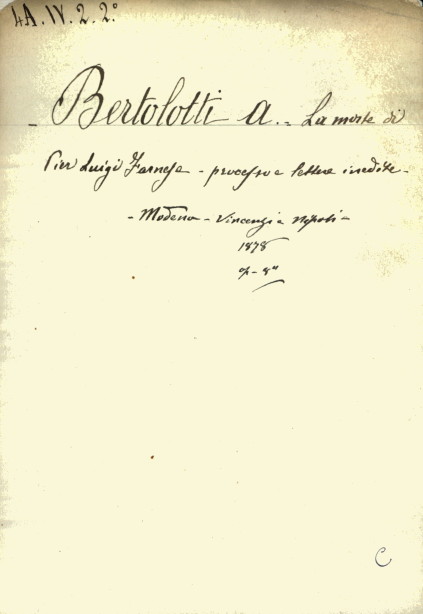 4A.IV.2.2°
Bertolotti A.. La morte di
Pier Luigi Farnese - processo e lettere inedite -
- Modena - Vincenzi e Nipoti -
1878
op - 8°
C